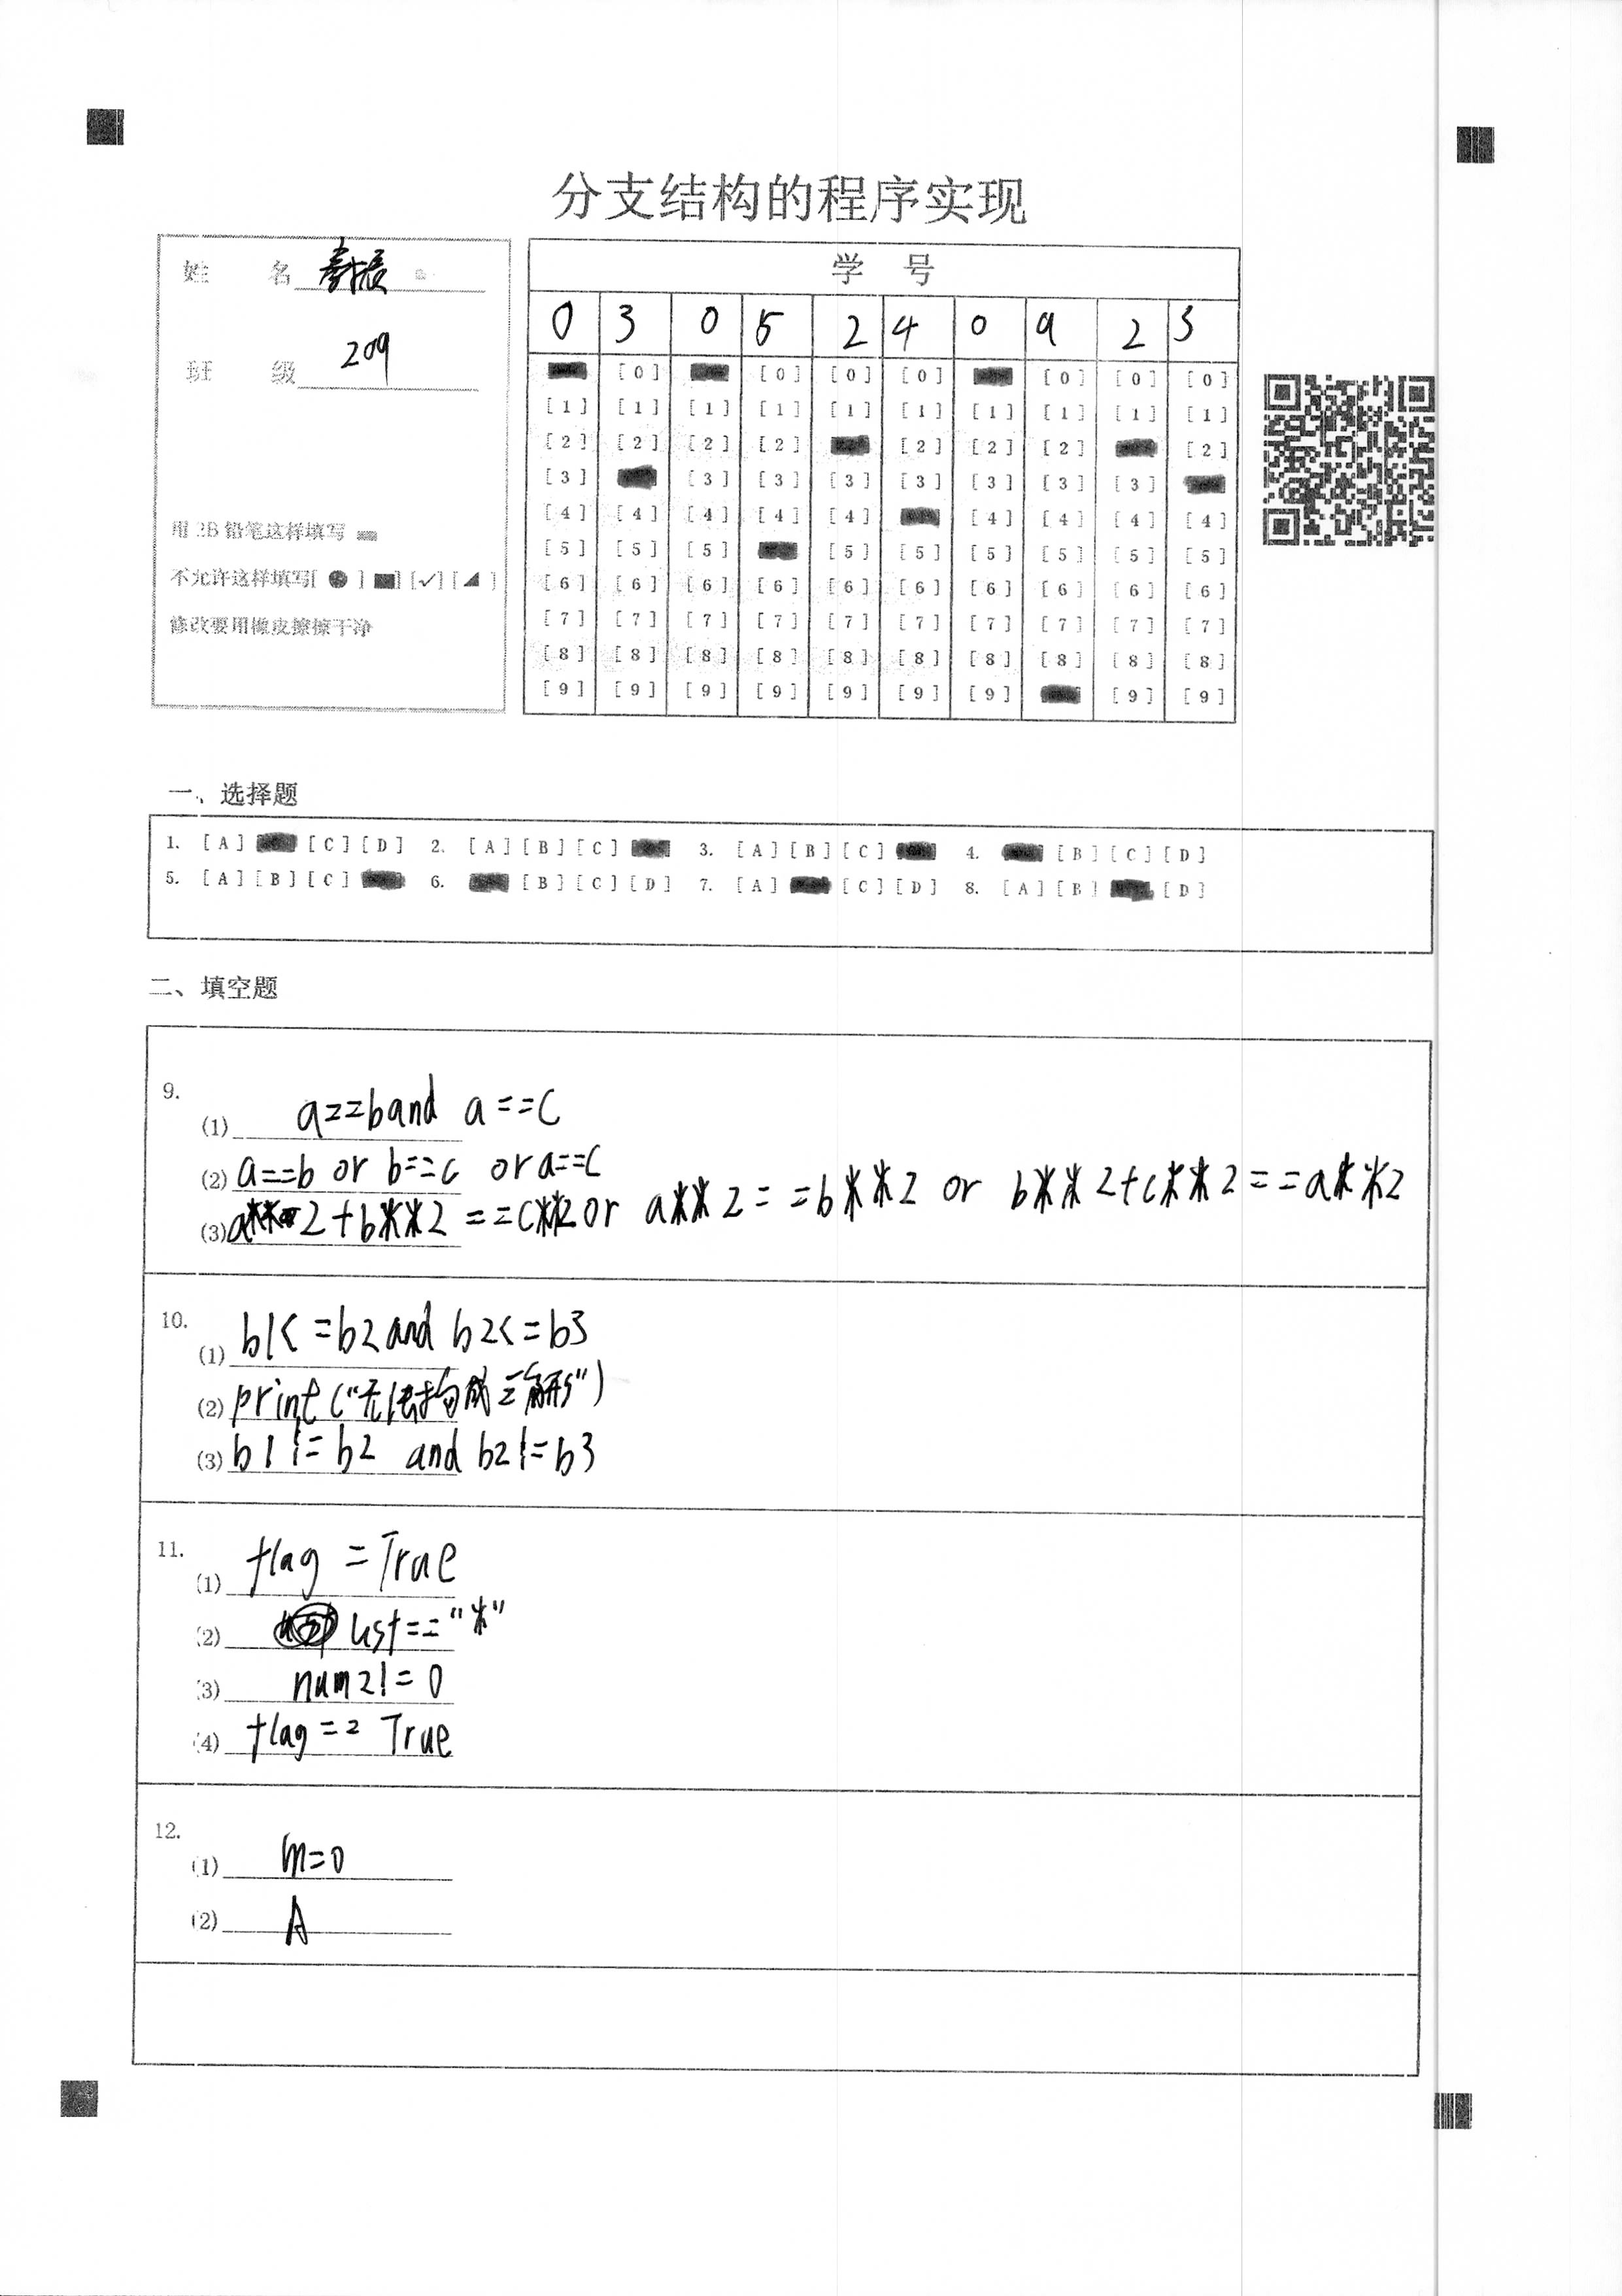 分支结构的程序实现
姓 名
班 级 209
用 2B 铅笔这样填写
不允许这样填写[ ● ] ■] [✓] [◢ ]
修改要用橡皮擦擦干净
学 号
0 3 0 5 2 4 0 9 2 3
[0] [0] [0] [0] [0] [0] [0]
[1] [1] [1] [1] [1] [1] [1] [1] [1] [1]
[2] [2] [2] [2] [2] [2] [2] [2]
[3] [3] [3] [3] [3] [3] [3] [3]
[4] [4] [4] [4] [4] [4] [4] [4] [4]
[5] [5] [5] [5] [5] [5] [5] [5] [5]
[6] [6] [6] [6] [6] [6] [6] [6] [6] [6]
[7] [7] [7] [7] [7] [7] [7] [7] [7] [7]
[8] [8] [8] [8] [8] [8] [8] [8] [8] [8]
[9] [9] [9] [9] [9] [9] [9] [9] [9]
一、选择题
1. [A] [C] [D] 2. [A] [B] [C] 3. [A] [B] [C] 4. [B] [C] [D]
5. [A] [B] [C] 6. [B] [C] [D] 7. [A] [C] [D] 8. [A] [B] [D]
二、填空题
9.
(1) a==b and a==c
(2) a==b or b==c or a==c
(3) a**2+b**2==c**2 or a**2==b**2 or b**2+c**2==a**2
10.
(1) b1<=b2 and b2<=b3
(2) print("无法构成三角形")
(3) b1!=b2 and b2!=b3
11.
(1) flag=True
(2) list=="*"
(3) num2!=0
(4) flag==True
12.
(1) m=0
(2) A